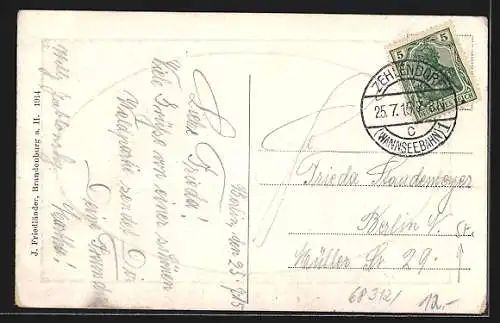 J. Friedländer, Brandenburg a. H. 1914
Berlin, den 25.7.15
Liebe Frieda!
Viele Grüße von einer schönen
Waldpartie sendet Dir
Deine Freundin
Martha!
Willy
5 5
ZEHLENDORF
25.7.15
c
(WANNSEEBAHN)
Frieda
Berlin N.
Müller Str 29.
68312/
12.-